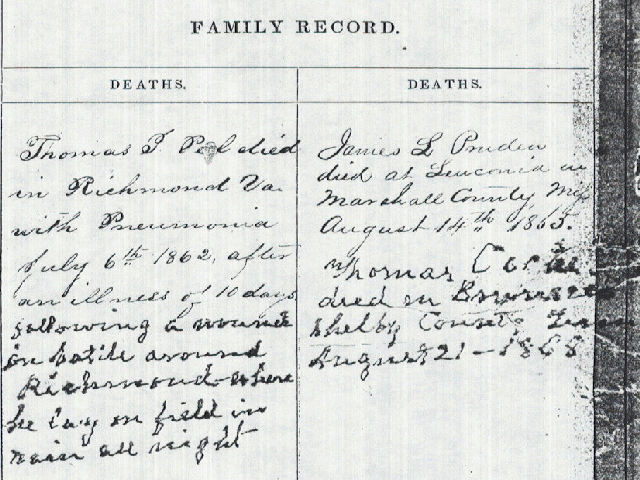 FAMILY RECORD.
DEATHS.
Thomas T died
in Richmond Va.
with Pneumonia
July 6th 1862, after
an illness of 10 days
following a wound
in battle around
Richmond where
he lay on field in
rain all night
DEATHS.
James L Pruden
died at
Marshall County
August 14th 1865.
Thomas
died in
Shelby County
August 21-1868